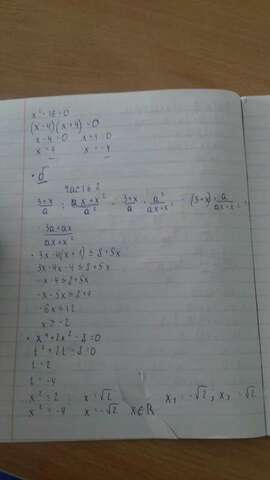 x² - 16 = 0
(x-4)(x+4) = 0
x-4=0 x+4=0
x=4 x=-4
• б
Часть 2
(3+x)/a : (ax+x²)/a² = (3+x)/a · a²/(ax+x²) = (3+x)·a/(ax+x²) =
(3a+ax)/(ax+x²)
• 3x-4(x+1) ≤ 8+5x
3x-4x-4 ≤ 8+5x
-x-4 ≤ 8+5x
-x-5x ≤ 8+4
-6x ≤ 12
x ≥ -2
• x⁴+2x²-8=0
t²+2t-8=0
t=2
t=-4
x²=2 x=√2 x₁=-√2; x₂=√2
x²=-4 x=-√2 x∈R